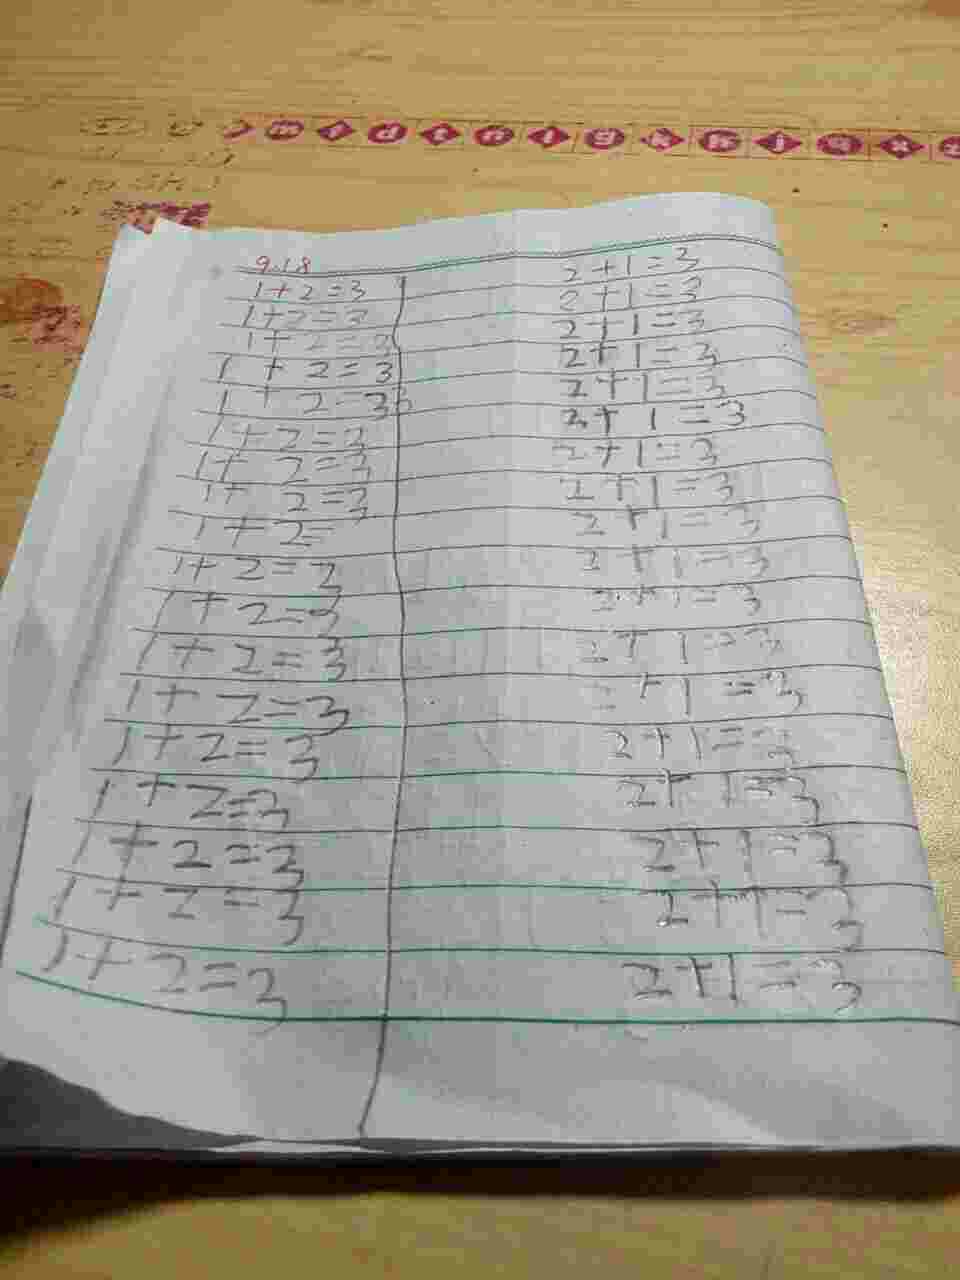 m f d t n l g k h j q x
9.18
1+2=3
1+2=3
1+2=3
1+2=3
1+2=3
1+2=3
1+2=3
1+2=3
1+2=
1+2=3
1+2=3
1+2=3
1+2=3
1+2=3
1+2=3
1+2=3
1+2=3
1+2=3
2+1=3
2+1=3
2+1=3
2+1=3
2+1=3
2+1=3
2+1=3
2+1=3
2+1=3
2+1=3
2+1=3
2+1=3
2+1=3
2+1=3
2+1=3
2+1=3
2+1=3
2+1=3